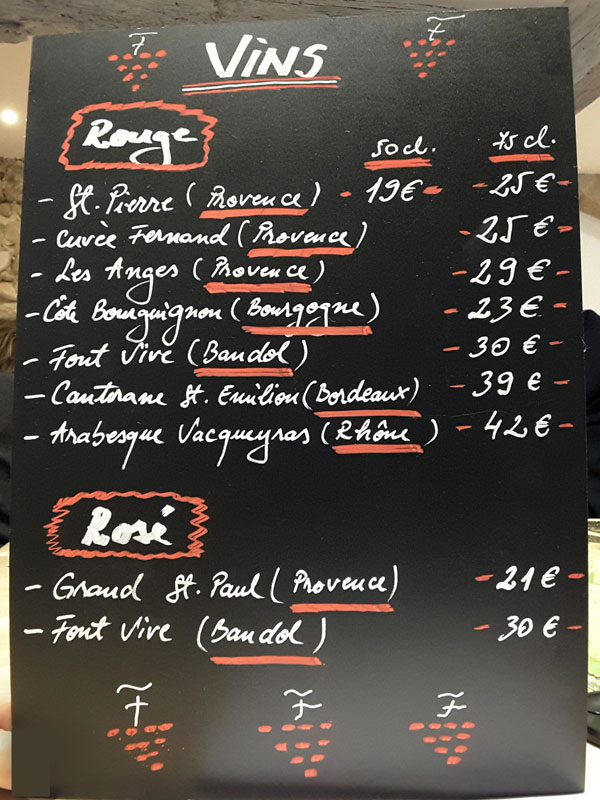 Vins
Rouge
50 cl. 75 cl.
- St. Pierre (Provence) - 19€ - - 25€ -
- Cuvèe Fernand (Provence) - 25 € -
- Les Anges (Provence) - 29 € -
- Côte Bourguignon (Bourgogne) - 23 € -
- Font Vive (Bandol) - 30 € -
- Canterane St. Emilion (Bordeaux) - 39 € -
- Arabesque Vacqueyras (Rhône) - 42 € -
Rosé
- Grand St. Paul (Provence) - 21 € -
- Font Vive (Bandol) - 30 € -